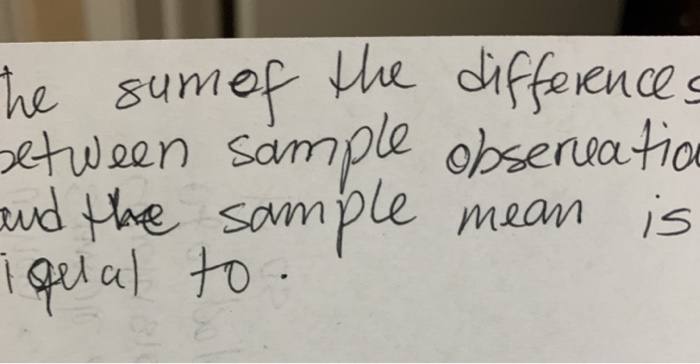 the sum of the differences
between sample observatio
and the sample mean is
iqual to.